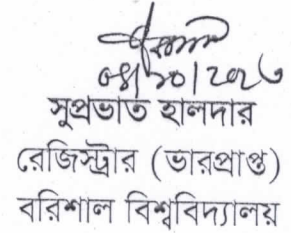 ০৪/১০/২০২৩
সুপ্রভাত হালদার
রেজিস্ট্রার (ভারপ্রাপ্ত)
বরিশাল বিশ্ববিদ্যালয়